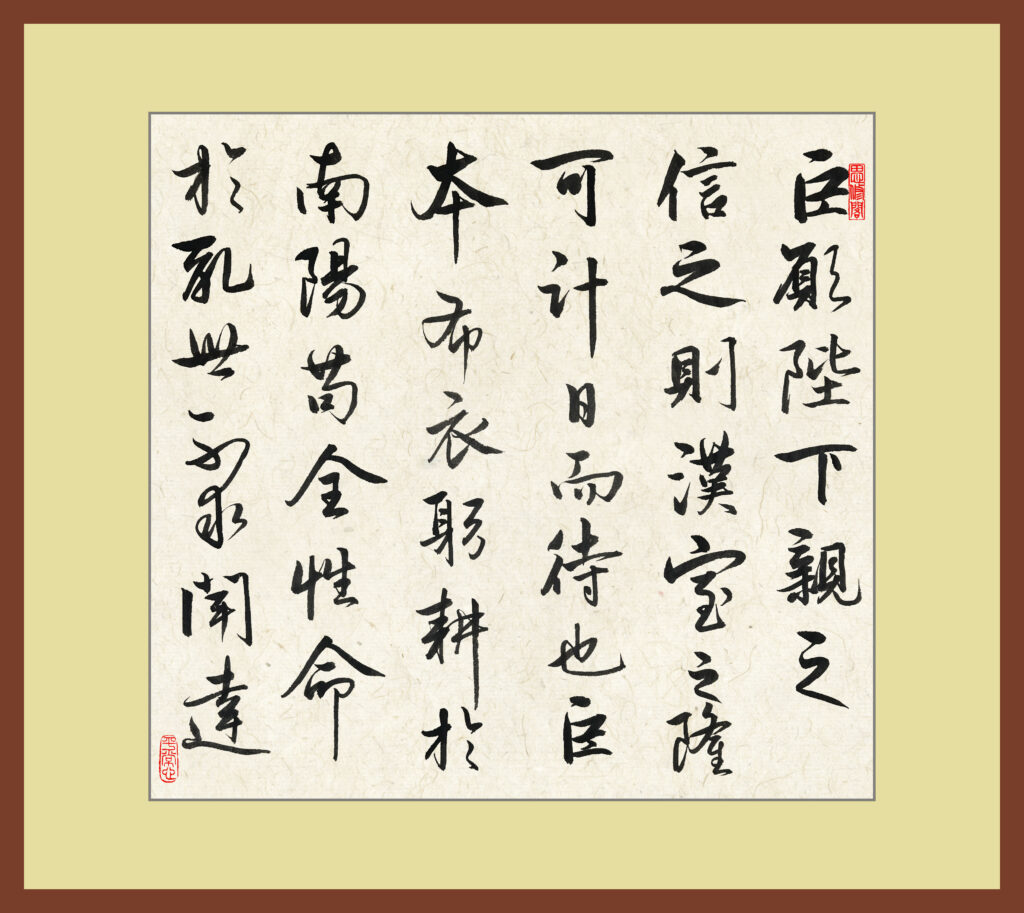 臣願陛下親之
信之則漢室之隆
可計日而待也臣
本布衣躬耕於
南陽苟全性命
於亂世不求聞達
平常心